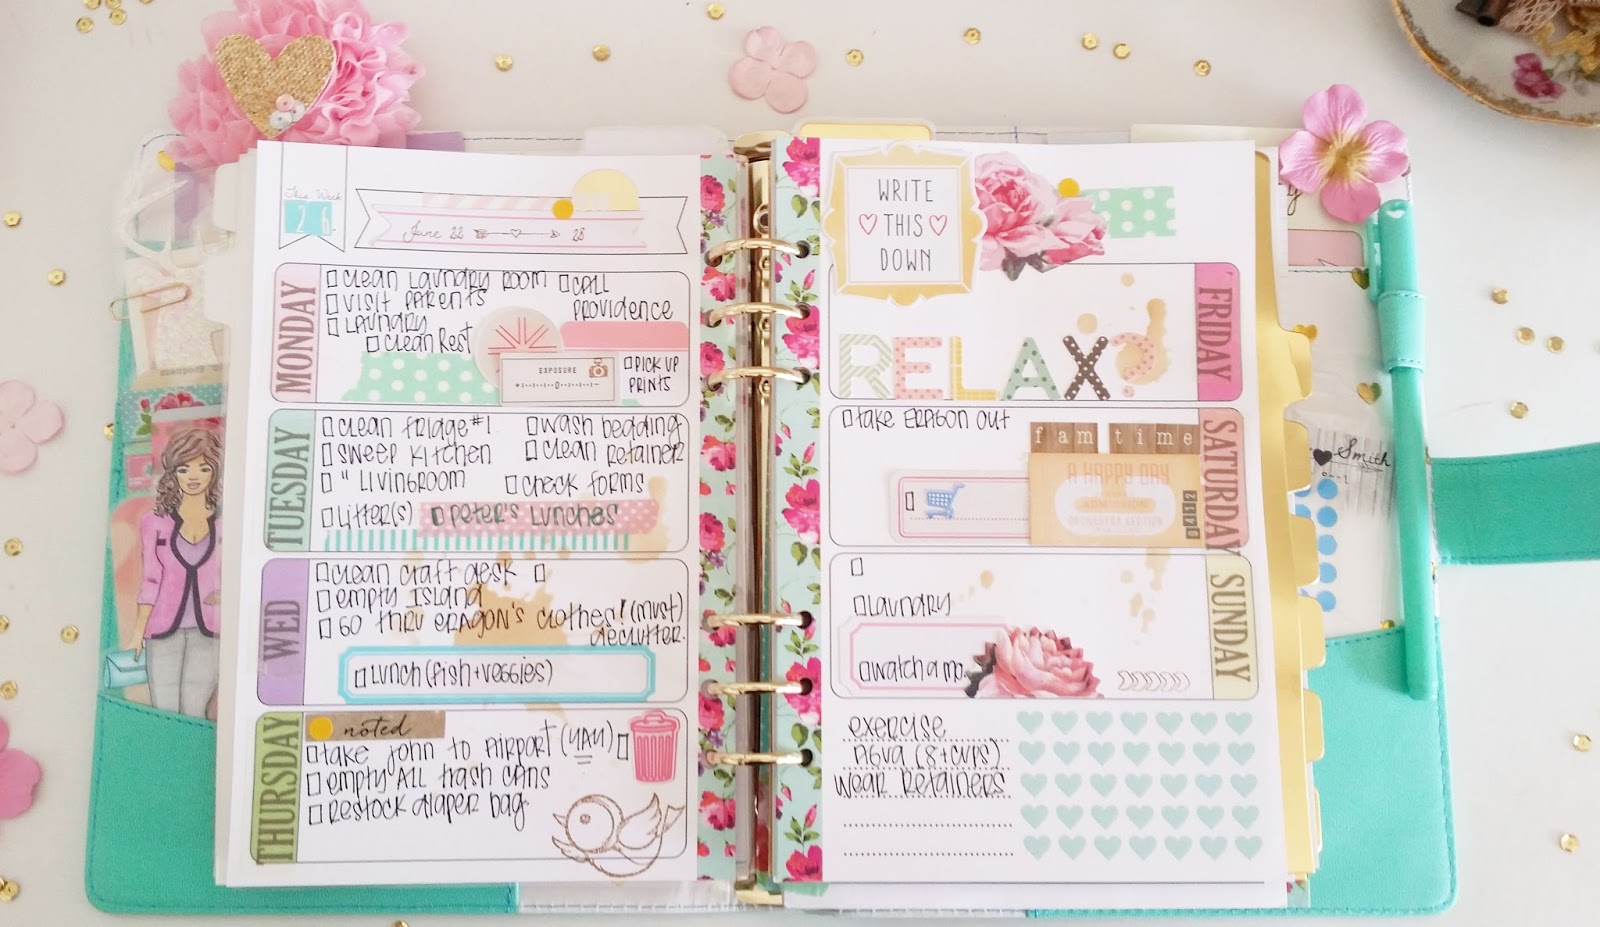 This Week
26.
June 22 28
MONDAY
clean laundry room
visit parents
laundry
clean rest
call
providence
EXPOSURE
PICK UP
PRINTS
TUESDAY
clean fridge #1
sweep kitchen
" livingroom
litter(s)
wash bedding
clean retainer
check forms
Peter's lunches
WED
clean craft desk
empty island
go thru Eragon's clothes! (must)
declutter.
lunch (fish + veggies)
THURSDAY
noted
take John to airport (4AM)
empty ALL trash cans
restock diaper bag.
WRITE
THIS
DOWN
FRIDAY
RELAX?
SATURDAY
take Eragon out
fam time
A HAPPY DAY
0412
SUNDAY
laundry
watch a mo
exercise
Agua (8+cups)
wear retainers
Smith